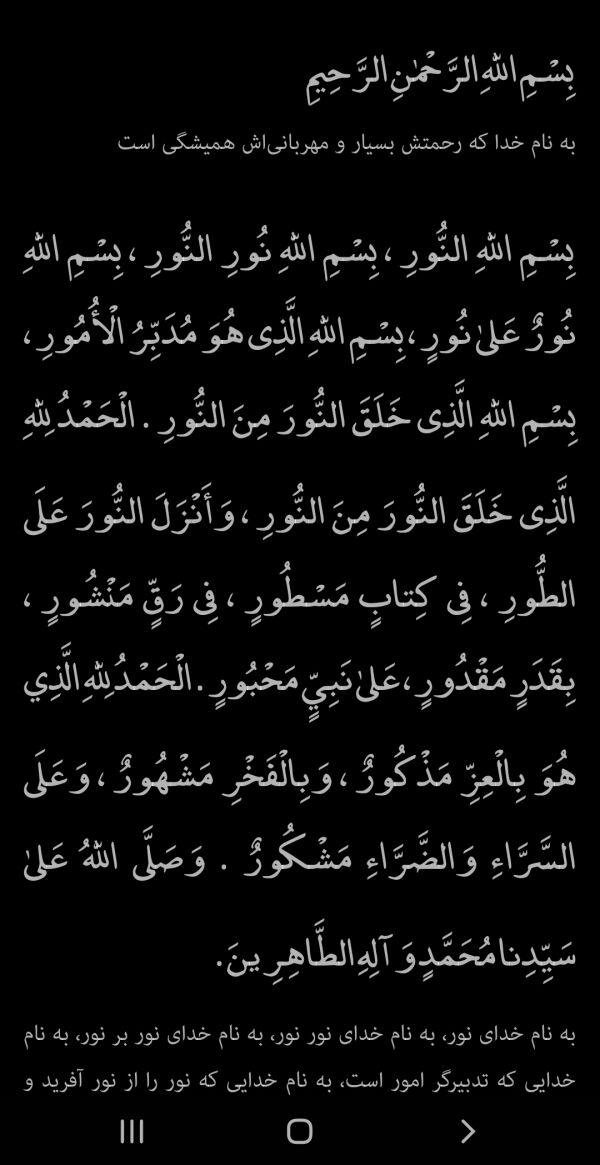 بِسْمِ اللّٰهِ الرَّحْمٰنِ الرَّحِيمِ
به نام خدا که رحمتش بسیار و مهربانی‌اش همیشگی است
بِسْمِ اللّٰهِ النُّورِ ، بِسْمِ اللّٰهِ نُورِ النُّورِ ، بِسْمِ اللّٰهِ
نُورٌ عَلىٰ نُورٍ ، بِسْمِ اللّٰهِ الَّذِى هُوَ مُدَبِّرُ الْأُمُورِ ،
بِسْمِ اللّٰهِ الَّذِى خَلَقَ النُّورَ مِنَ النُّورِ . الْحَمْدُ لِلّٰهِ
الَّذِى خَلَقَ النُّورَ مِنَ النُّورِ ، وَأَنْزَلَ النُّورَ عَلَى
الطُّورِ ، فِى كِتابٍ مَسْطُورٍ ، فِى رَقٍّ مَنْشُورٍ ،
بِقَدَرٍ مَقْدُورٍ ، عَلىٰ نَبِيٍّ مَحْبُورٍ . الْحَمْدُ لِلّٰهِ الَّذِي
هُوَ بِالْعِزِّ مَذْكُورٌ ، وَبِالْفَخْرِ مَشْهُورٌ ، وَعَلَى
السَّرَّاءِ وَالضَّرَّاءِ مَشْكُورٌ . وَصَلَّى اللّٰهُ عَلىٰ
سَيِّدِنا مُحَمَّدٍ وَ آلِهِ الطَّاهِرِينَ.
به نام خدای نور، به نام خدای نور نور، به نام خدای نور بر نور، به نام
خدایی که تدبیرگر امور است، به نام خدایی که نور را از نور آفرید و